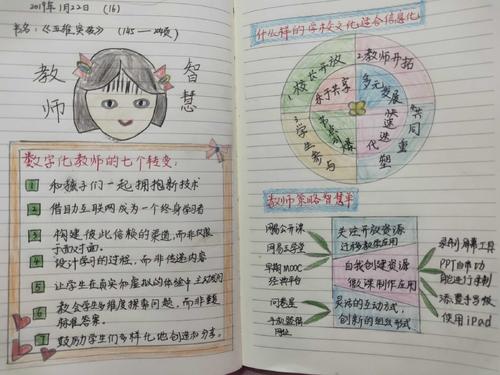 2019年1月22日 (16)
书名:《互维实验》(145—
教师
智慧
数字化教师的七个转变:
1 和孩子们一起拥抱新技术
2 借助互联网成为一个终身学习者
3 构建彼此信赖的渠道,而非仅限于面对面。
4 设计学习的过程,而非传递内容
5 让学生在真实和虚拟的体验中主动
6 教会学生多维度探索问题,而非
标准答案。
7 鼓励学生们多样化地创造和分享。
什么样的学校文化适合信息化
1校长开放
乐于共享
2教师开拓
多元发展
3学生参与
共同重塑
快速迭代
教师策略智慧羊
网易公开课
网易云课堂
早期MOOC
经典平台
问卷星
关注开放资源
迁移教学应用
自我创建资源
微课制作应用
灵活的互动方式,
创新的组织形式
录制屏幕工具
PPT自带功
能进行录制
添置手写板
使用iPad